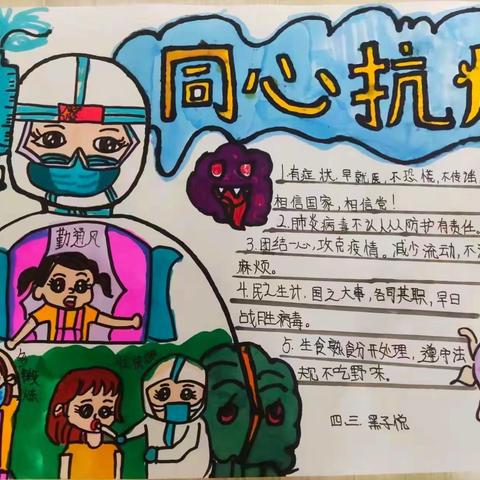 同心抗疫
1.有症状,早就医,不恐慌,不传谣
相信国家,相信党!
2.肺炎病毒不么人人防护有责任。
3.团结一心,攻克疫情。减少流动,不
麻烦。
4.民之生计,国之大事,各司其职,早日
战胜病毒。
5.生食熟食分开处理,遵守法
规不吃野味。
四.三 黑子悦
勤通风